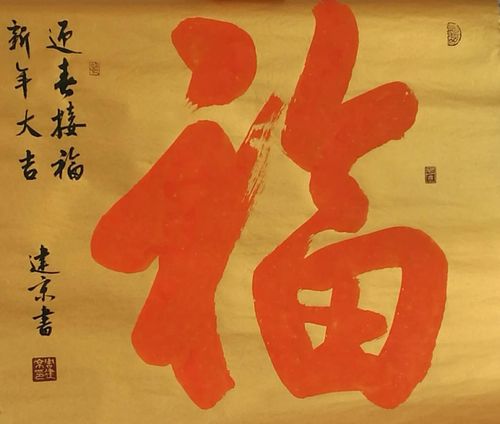 福
迎春接福
新年大吉
建京書